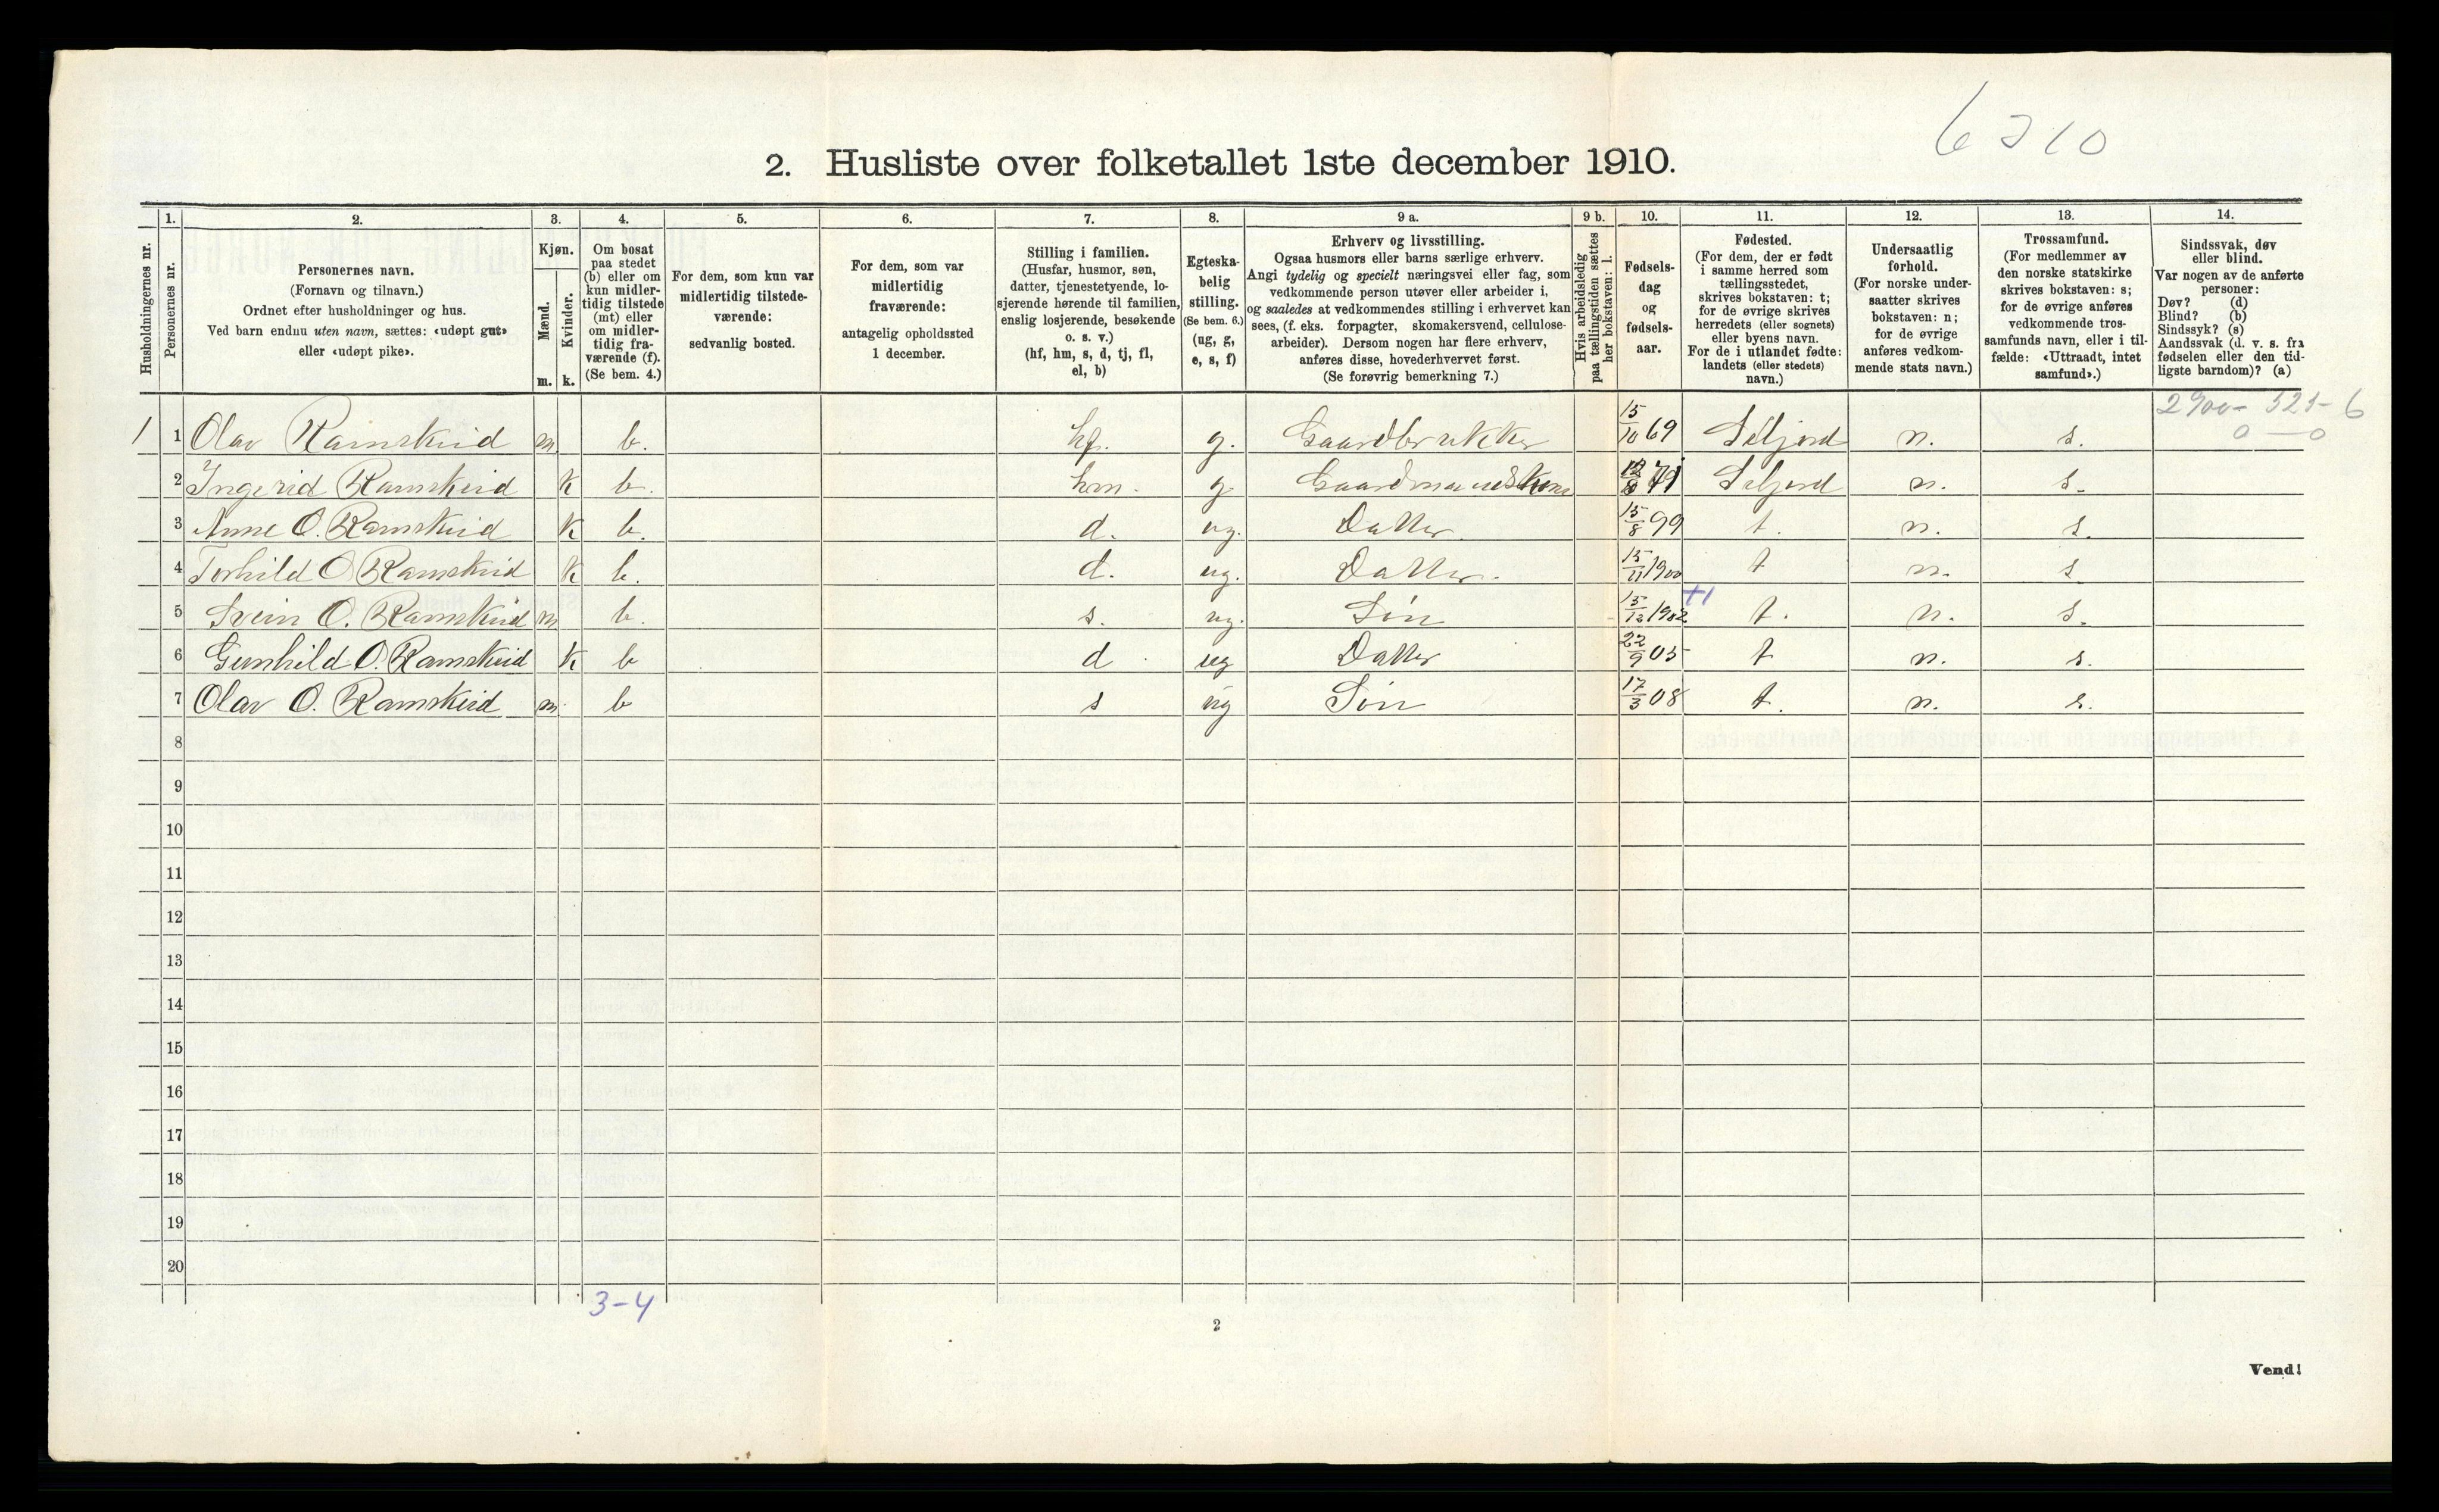 6210
2. Husliste over folketallet 1ste december 1910.
Husholdningernes nr.
1. Personernes nr.
2. Personernes navn. (Fornavn og tilnavn.) Ordnet efter husholdninger og hus. Ved barn endnu uten navn, sættes: «udøpt gut» eller «udøpt pike».
3. Kjøn. Mænd. m. Kvinder. k.
4. Om bosat paa stedet (b) eller om kun midlertidig tilstede (mt) eller om midlertidig fraværende (f). (Se bem. 4.)
5. For dem, som kun var midlertidig tilstedeværende: sedvanlig bosted.
6. For dem, som var midlertidig fraværende: antagelig opholdssted 1 december.
7. Stilling i familien. (Husfar, husmor, søn, datter, tjenestetyende, losjerende hørende til familien, enslig losjerende, besøkende o. s. v.) (hf, hm, s, d, tj, fl, el, b)
8. Egteskabelig stilling. (Se bem. 6.) (ug, g, e, s, f)
9 a. Erhverv og livsstilling. Ogsaa husmors eller barns særlige erhverv. Angi tydelig og specielt næringsvei eller fag, som vedkommende person utøver eller arbeider i, og saaledes at vedkommendes stilling i erhvervet kan sees, (f. eks. forpagter, skomakersvend, cellulosearbeider). Dersom nogen har flere erhverv, anføres disse, hovederhvervet først. (Se forøvrig bemerkning 7.)
9 b. Hvis arbeidsledig paa tællingstiden sættes her bokstaven: l.
10. Fødselsdag og fødselsaar.
11. Fødested. (For dem, der er født i samme herred som tællingsstedet, skrives bokstaven: t; for de øvrige skrives herredets (eller sognets) eller byens navn. For de i utlandet fødte: landets (eller stedets) navn.)
12. Undersaatlig forhold. (For norske undersaatter skrives bokstaven: n; for de øvrige anføres vedkommende stats navn.)
13. Trossamfund. (For medlemmer av den norske statskirke skrives bokstaven: s; for de øvrige anføres vedkommende trossamfunds navn, eller i tilfælde: «Uttraadt, intet samfund».)
14. Sindssvak, døv eller blind. Var nogen av de anførte personer: Døv? (d) Blind? (b) Sindssyk? (s) Aandssvak (d. v. s. fra fødselen eller den tidligste barndom)? (a)
2900- 325- 6
0 — 0
1 1 Olav Ramskeid m. b. hf. g. Gaardbrukker 15/10 69 Seljord n. s.
2 Ingerid Ramskeid k b. hm. g Gaardmandskone Seljord n. s.
3 Anne O. Ramskeid k b. d. ug. Datter. 15/8 99 t. n. s.
4 Torhild O Ramskeid k b. d. ug. Datter. 15/11 1900 t n. s
5 Svein O. Ramskeid m b. s. ug. Søn 15/12 1902 t. n. s.
6 Gunhild O. Ramskeid k b d ug Datter 22/9 05 t n. s.
7 Olav O. Ramskeid m. b s ug Søn 17/3 08 t. n. s.
8
9
10
11
12
13
14
15
16
17
18
19
20
3-4
2
Vend!